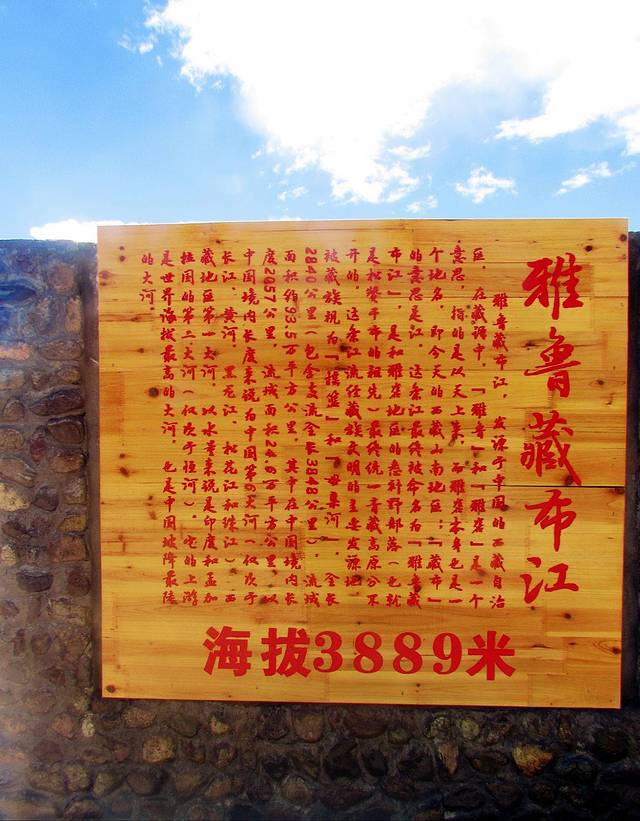 雅鲁藏布江
雅鲁藏布江，发源于中国的西藏自治
区，在藏语中，『雅鲁』和『雅砻』是一个
意思，指的是从天上来，而雅砻本身也是一
个地名，即今天的西藏山南地区；『藏布』
的意思是江，这条江最终被命名为『雅鲁藏
布江』，是和雅砻地区的悉补野部落（也就
是松赞干布的祖先）最终统一青藏高原分不
开的，这条江流经藏族文明的主要发源地，
被藏族视为『摇篮』和『母亲河』，全长
2840公里（包含支流全长3848公里），流域
面积约93.5万平方公里，其中在中国境内长
度2057公里，流域面积24.6万平方公里，以
中国境内长度来说为中国第6大河（仅次于
长江、黄河、黑龙江、松花江和珠江），西
藏地区第一大河，以水量来说是印度和孟加
拉国的第二大河（仅次于恒河），它的上游
是世界海拔最高的大河，也是中国坡降最陡
的大河。
海拔3889米